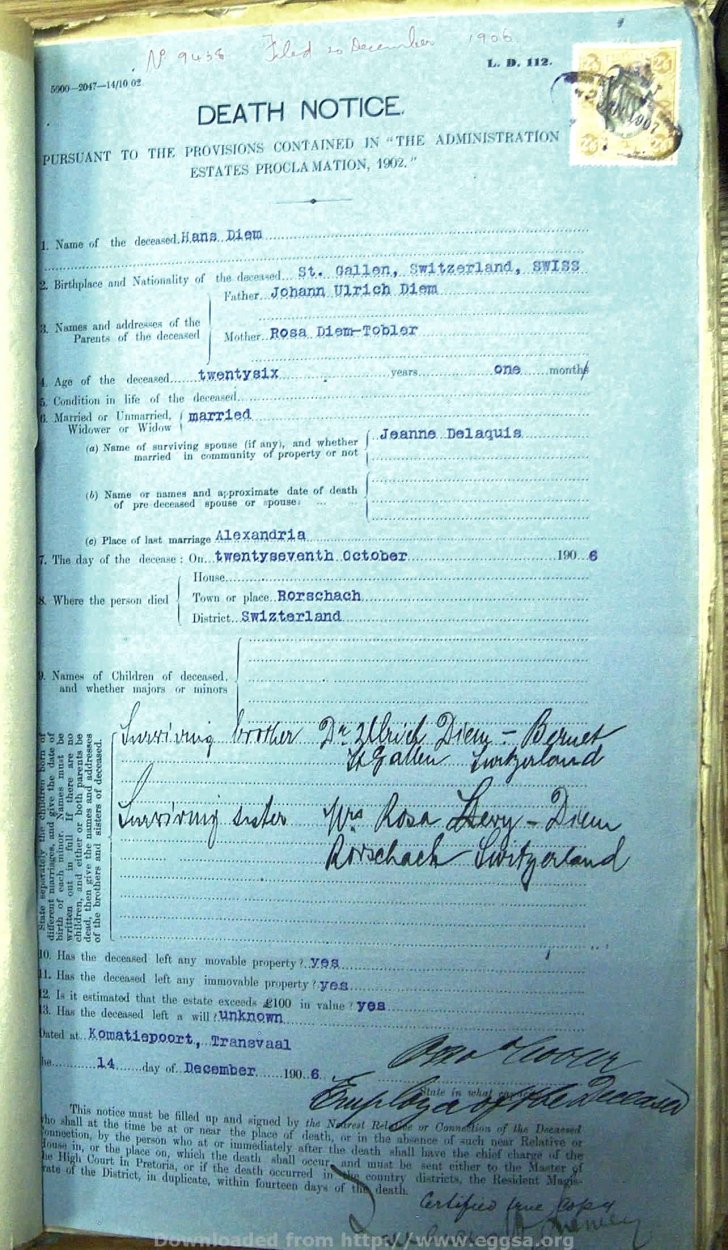 No 9438 Filed 20 December 1906
L. D. 112.
5000—2047—14/10 02
DEATH NOTICE.
PURSUANT TO THE PROVISIONS CONTAINED IN "THE ADMINISTRATION
ESTATES PROCLAMATION, 1902."
1. Name of the deceased Hans Diem
2. Birthplace and Nationality of the deceased St. Gallen, Switzerland, SWISS
3. Names and addresses of the Parents of the deceased
Father Johann Ulrich Diem
Mother Rosa Diem-Tobler
4. Age of the deceased twentysix years one month
5. Condition in life of the deceased
6. Married or Unmarried, Widower or Widow married
(a) Name of surviving spouse (if any), and whether married in community of property or not Jeanne Delaquis
(b) Name or names and approximate date of death of pre deceased spouse or spouse
(c) Place of last marriage Alexandria
7. The day of the decease: On twentyseventh October 1906
8. Where the person died
House
Town or place Rorschach
District Swizterland
9. Names of Children of deceased, and whether majors or minors
State separately the children born of
different marriages, and give the date of
birth of each minor. Names must be
written out in full. If there are no
children, and either or both parents be
dead, then give the names and addresses
of the brothers and sisters of deceased.
Surviving brother Dr Ullrich Diem - Bernet
St Gallen Switzerland
Surviving sister Mrs Rosa Levy - Diem
Rorschach Switzerland
10. Has the deceased left any movable property? yes
11. Has the deceased left any immovable property? yes
12. Is it estimated that the estate exceeds £100 in value? yes
13. Has the deceased left a will? unknown
Dated at Komatiepoort, Transvaal
the 14 day of December 1906
State in what
Employé of the Deceased
This notice must be filled up and signed by the Nearest Relative or Connection of the Deceased
who shall at the time be at or near the place of death, or in the absence of such near Relative or
Connection, by the person who at or immediately after the death shall have the chief charge of the
House in, or the place on, which the death shall occur, and must be sent either to the Master of
the High Court in Pretoria, or if the death occurred in the country districts, the Resident Magis-
trate of the District, in duplicate, within fourteen days of the death.
Certified true Copy
Downloaded from http://www.eggsa.org